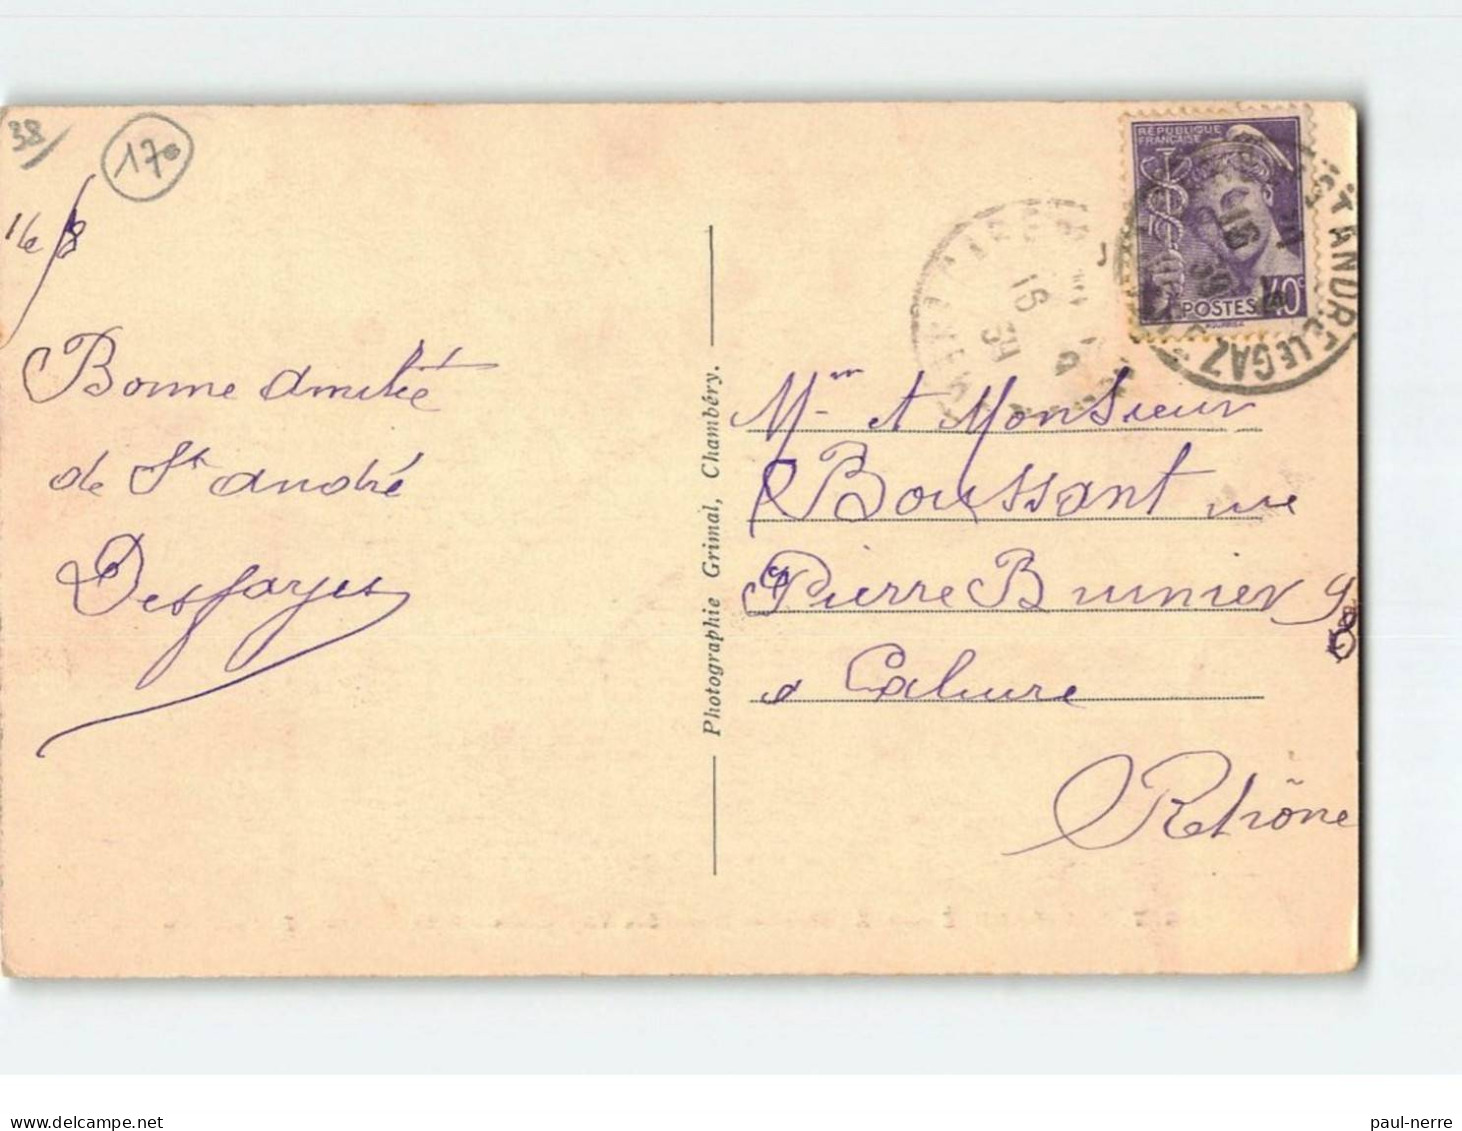 38/
170
16/8
Bonne amitié
de St André
Desfayes
Photographie Grimal, Chambéry.
RÉPUBLIQUE
FRANÇAISE
POSTES 40c
ST ANDRE LE GAZ
16
39
Mm et Monsieur
Boussant rue
Pierre Brunier 98
a Caluire
Rhône
paul-nerre